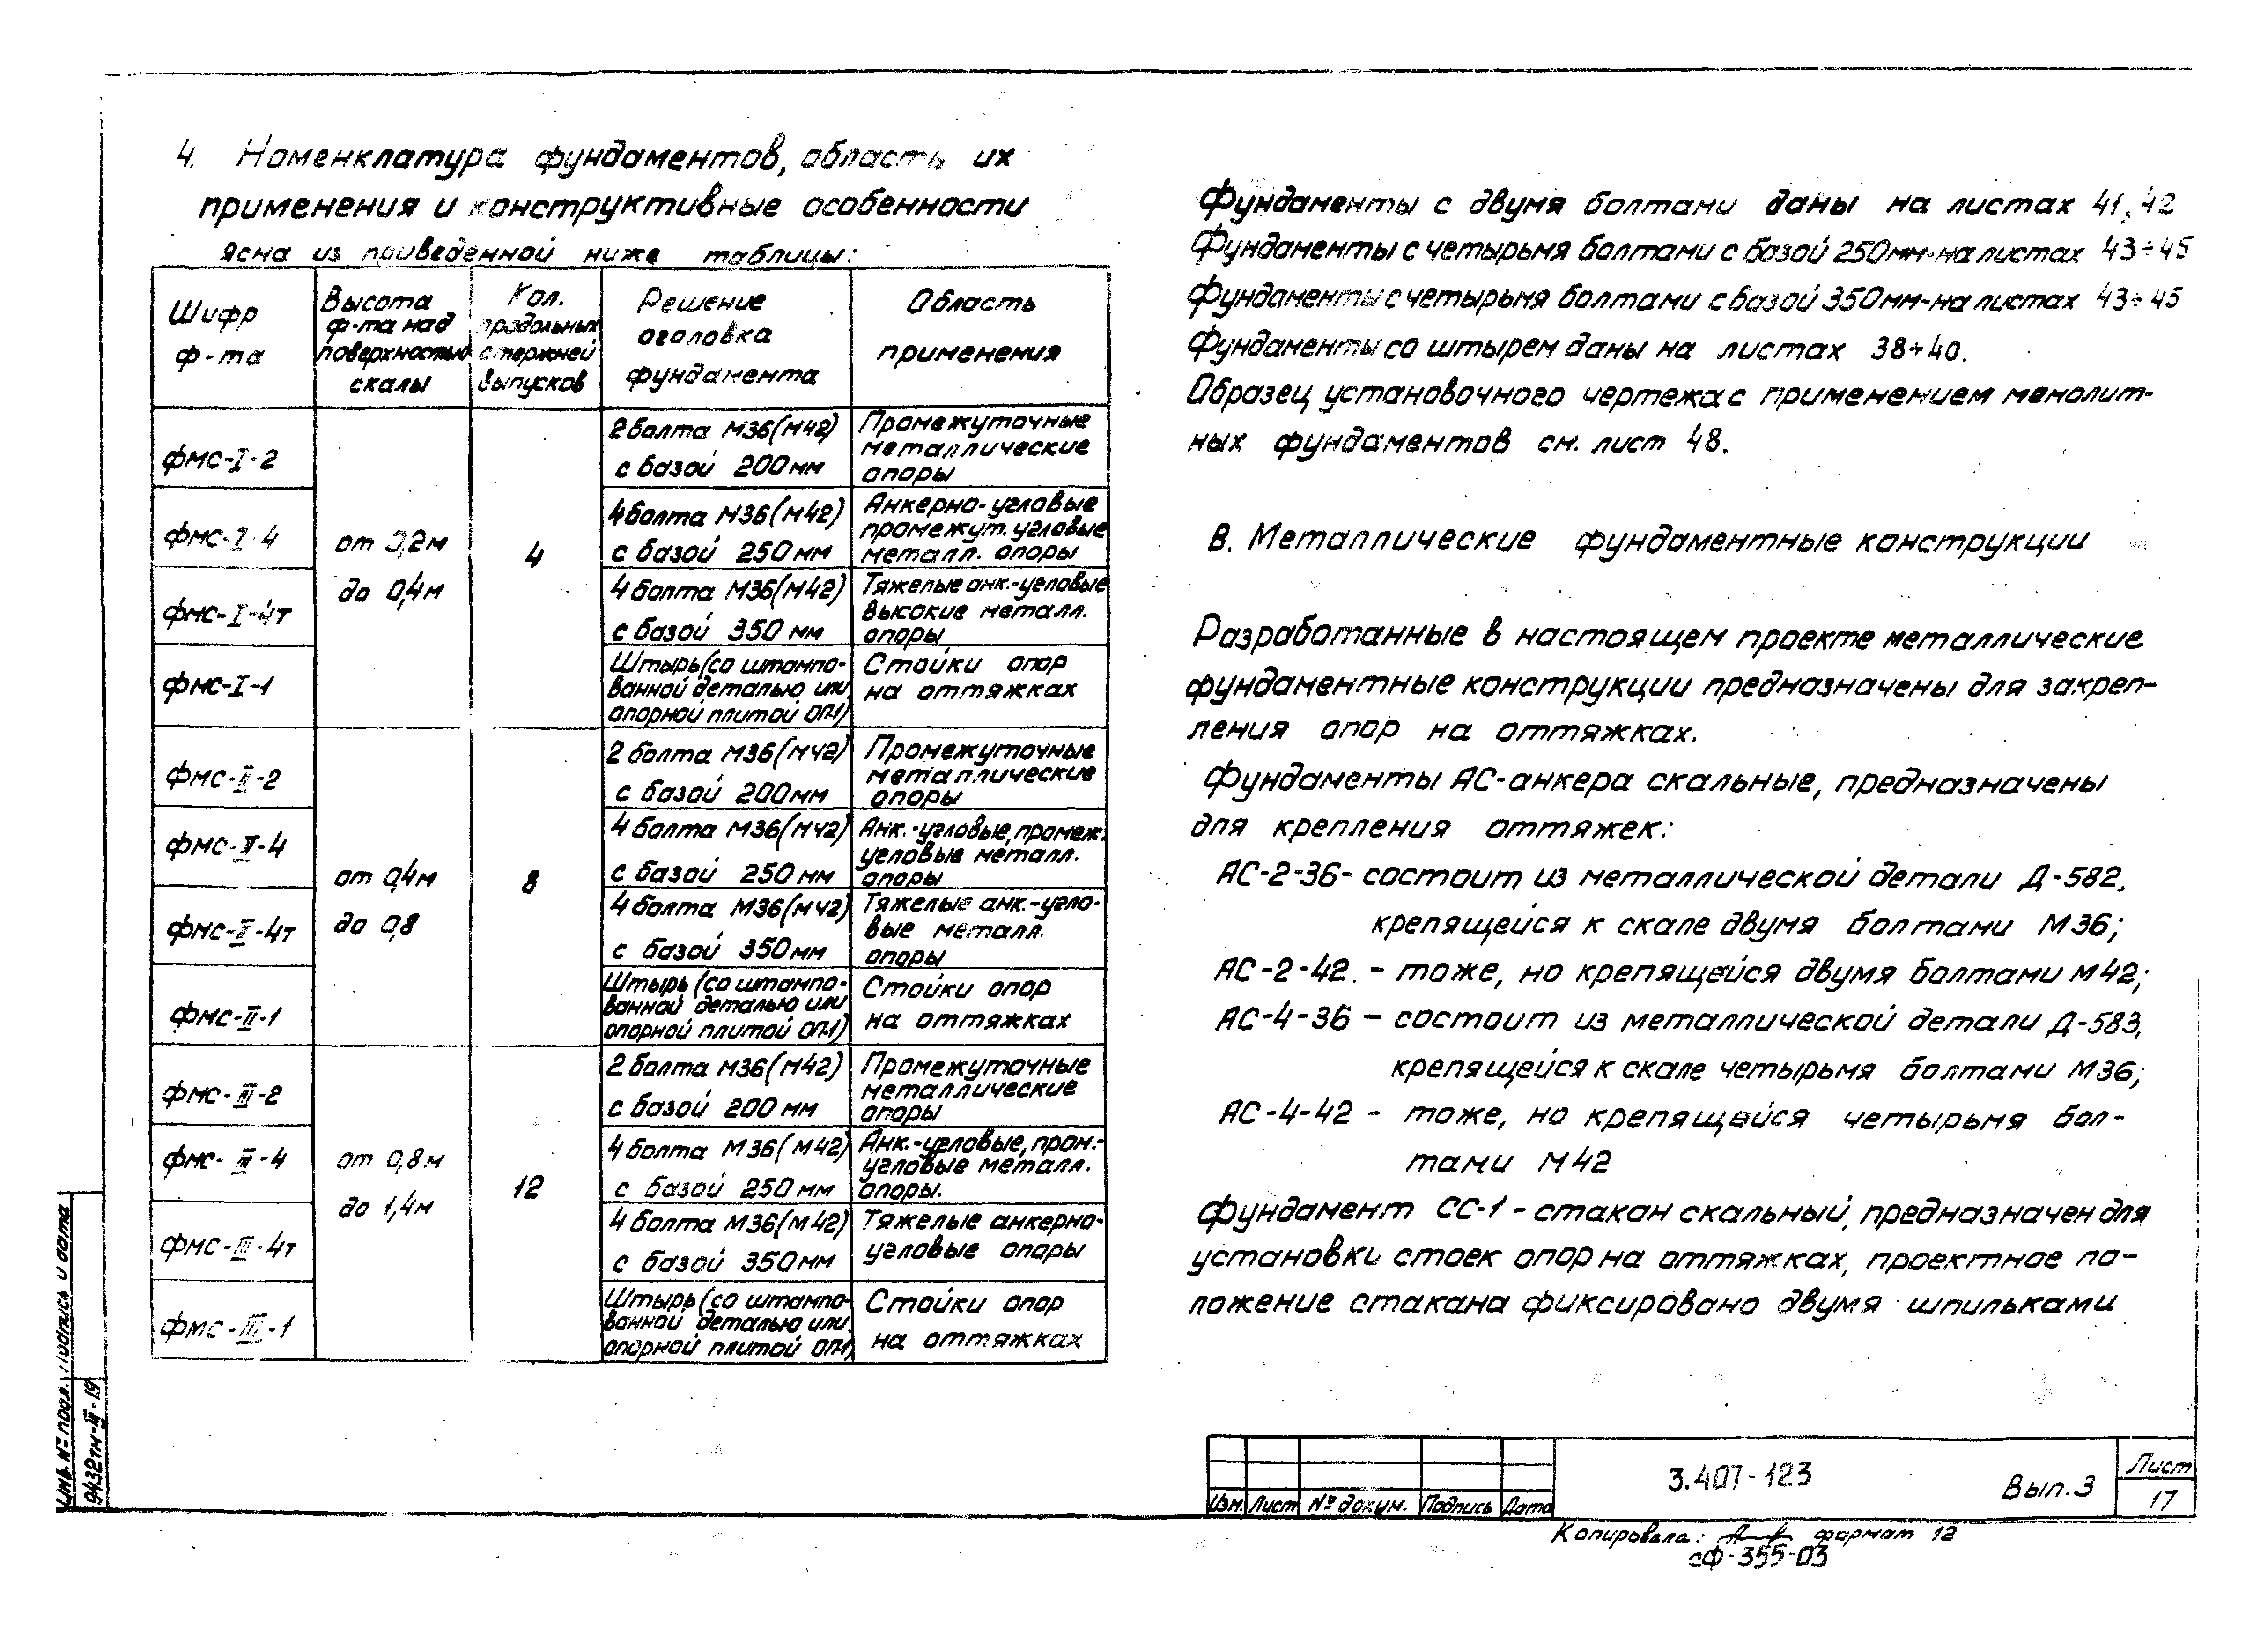 4. Номенклатура фундаментов, область их
применения и конструктивные особенности
ясна из приведенной ниже таблицы:
Шифр
ф-та
Высота
ф-та над
поверхностью
скалы
Кол.
продольных
стержней
выпусков
Решение
оголовка
фундамента
Область
применения
ФМС-I-2
2 болта М36(М42)
с базой 200мм
Промежуточные
металлические
опоры
ФМС-I-4
от 0,2м
до 0,4м
4
4 болта М36(М42)
с базой 250мм
Анкерно-угловые
промежут. угловые
металл. опоры
ФМС-I-4т
4 болта М36(М42)
с базой 350мм
Тяжелые анк.-угловые
высокие металл.
опоры
ФМС-I-1
Штырь (со штампо-
ванной деталью или
опорной плитой ОП1)
Стойки опор
на оттяжках
ФМС-II-2
2 болта М36(М42)
с базой 200мм
Промежуточные
металлические
опоры
ФМС-II-4
от 0,4м
до 0,8
8
4 болта М36(М42)
с базой 250мм
Анк.-угловые, промеж.
угловые металл.
опоры
ФМС-II-4т
4 болта М36(М42)
с базой 350мм
Тяжелые анк.-угло-
вые металл.
опоры
ФМС-II-1
Штырь (со штампо-
ванной деталью или
опорной плитой ОП1)
Стойки опор
на оттяжках
ФМС-III-2
2 болта М36(М42)
с базой 200мм
Промежуточные
металлические
опоры
ФМС-III-4
от 0,8м
до 1,4м
12
4 болта М36(М42)
с базой 250мм
Анк.-угловые, пром.-
угловые металл.
опоры.
ФМС-III-4т
4 болта М36(М42)
с базой 350мм
Тяжелые анкерно-
угловые опоры
ФМС-III-1
Штырь (со штампо-
ванной деталью или
опорной плитой ОП1)
Стойки опор
на оттяжках
Фундаменты с двумя болтами даны на листах 41,42
Фундаменты с четырьмя болтами с базой 250мм-на листах 43÷45
Фундаменты с четырьмя болтами с базой 350мм-на листах 43÷45
Фундаменты со штырем даны на листах 38÷40.
Образец установочного чертежа с применением монолит-
ных фундаментов см. лист 48.
В. Металлические фундаментные конструкции
Разработанные в настоящем проекте металлические
фундаментные конструкции предназначены для закреп-
ления опор на оттяжках.
Фундаменты АС-анкера скальные, предназначены
для крепления оттяжек:
АС-2-36- состоит из металлической детали Д-582,
крепящейся к скале двумя болтами М36;
АС-2-42. - тоже, но крепящейся двумя болтами М42;
АС-4-36 - состоит из металлической детали Д-583,
крепящейся к скале четырьмя болтами М36;
АС-4-42 - тоже, но крепящейся четырьмя бол-
тами М42
Фундамент СС-1 - стакан скальный, предназначен для
установки стоек опор на оттяжках, проектное по-
ложение стакана фиксировано двумя шпильками
Инв. № подл. Подпись и дата
9432тм-III-19
Изм. Лист № докум. Подпись Дата
3.407-123 Вып.3
Лист
17
Копировала: формат 12
сФ-355-03